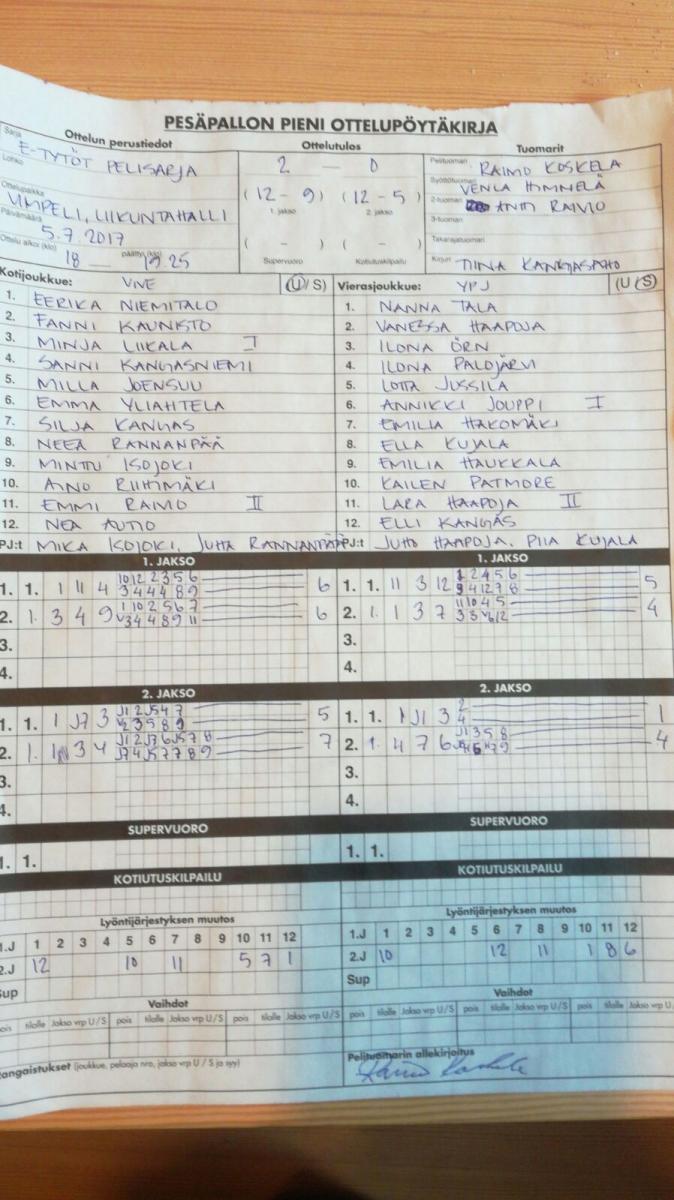 PESÄPALLON PIENI OTTELUPÖYTÄKIRJA
Ottelun perustiedot Ottelutulos Tuomarit
Sarja E-TYTÖT PELISARJA
Lohko
Ottelupaikka VIMPELI, LIIKUNTAHALLI
Päivämäärä 5.7.2017
Ottelu alkoi (klo) 18 päättyi (klo) 19.25
2 – 0
(12 – 9) (12 – 5)
1. jakso 2. jakso
( – ) ( – )
Supervuoro Kotiutuskilpailu
Pelituomari RAIMO KOSKELA
Syöttötuomari VENLA HIMMELÄ
2-tuomari ANTTI RAIVIO
3-tuomari
Takarajatuomari
Kirjuri TIINA KANGASAHO
Kotijoukkue: ViVe (U/S)
1. EERIKA NIEMITALO
2. FANNI KAUNISTO
3. MINJA LIIKALA I
4. SANNI KANGASNIEMI
5. MILLA JOENSUU
6. EMMA YLIAHTELA
7. SILJA KANGAS
8. NEEA RANNANPÄÄ
9. MINTTU ISOJOKI
10. AINO RIIHIMÄKI
11. EMMI RAIVIO II
12. NEA AUTIO
PJ:t MIKA ISOJOKI, JUHA RANNANPÄÄ
Vierasjoukkue: YPJ (U/S)
1. NANNA TALA
2. VANESSA HAAPOJA
3. ILONA ÖRN
4. ILONA PALOJÄRVI
5. LOTTA JUSSILA
6. ANNIKKI JOUPPI I
7. EMILIA HAKOMÄKI
8. ELLA KUJALA
9. EMILIA HAUKKALA
10. KAILEN PATMORE
11. LARA HAAPOJA II
12. ELLI KANGAS
PJ:t JUHO HAAPOJA, PIIA KUJALA
1. JAKSO 1. JAKSO
1. 1. 1 11 4 10 12 2 3 5 6 6
3 4 4 4 8 9
2. 1. 3 4 9 1 10 2 5 6 7 6
3 4 4 8 9 11
3.
4.
1. 1. 11 3 12 2 4 5 6 5
9 4 12 7 8
2. 1. 1 3 7 11 10 4 5 4
3.
4.
2. JAKSO 2. JAKSO
1. 1. 1 J7 3 J1 2 J5 4 7 5
3 5 8 9
2. 1. 3 4 J1 2 J3 6 J5 7 8 7
J7 4 J5 7 7 8 9
3.
4.
1. 1. 1 J11 3 2 1
4
2. 1. 4 7 6 J1 3 5 8 4
3.
4.
SUPERVUORO SUPERVUORO
1. 1. 1. 1.
KOTIUTUSKILPAILU KOTIUTUSKILPAILU
Lyöntijärjestyksen muutos
1.J 1 2 3 4 5 6 7 8 9 10 11 12
2.J 12 10 11 5 7 1
Sup
Lyöntijärjestyksen muutos
1.J 1 2 3 4 5 6 7 8 9 10 11 12
2.J 10 12 11 1 8 6
Sup
Vaihdot Vaihdot
pois tilalle Jakso vrp U/S pois tilalle Jakso vrp U/S pois tilalle Jakso vrp U/S
pois tilalle Jakso vrp U/S pois tilalle Jakso vrp U/S pois tilalle Jakso vrp U/S
Rangaistukset (joukkue, pelaaja nro, jakso vrp U / S ja syy)
Pelituomarin allekirjoitus
Raimo Koskela